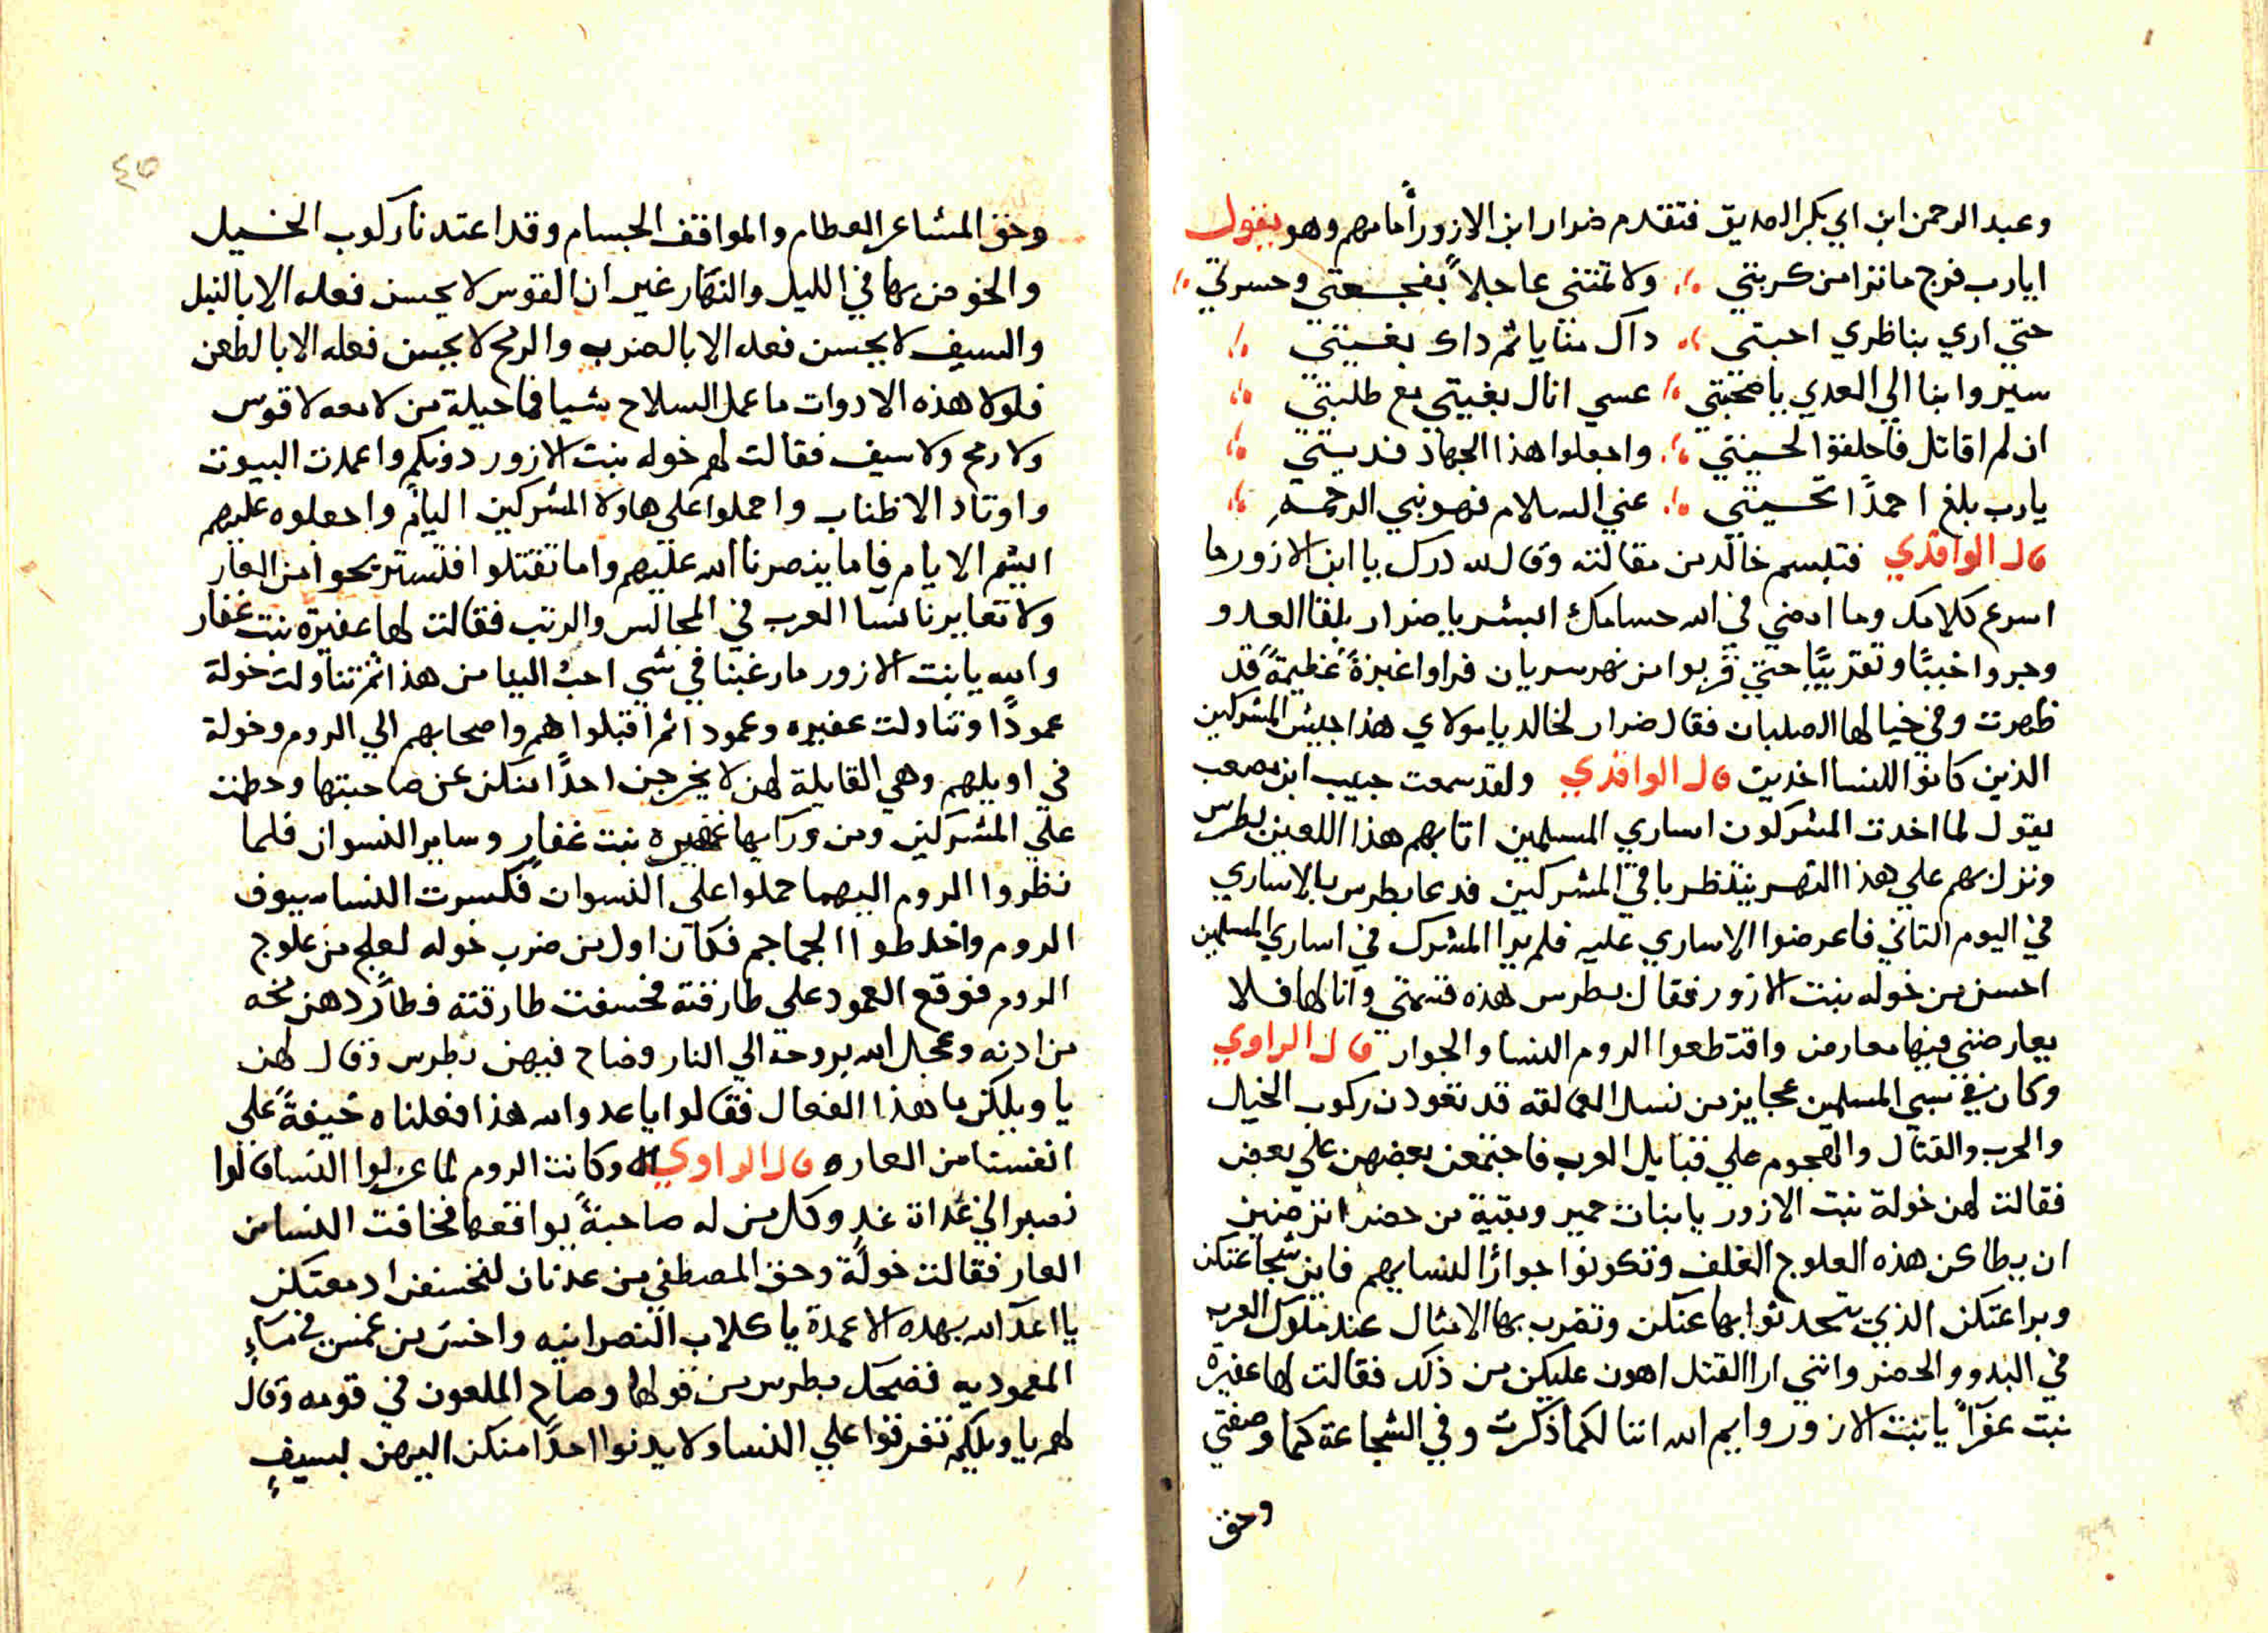 وعبد الرحمن ابن ابي بكر الصديق فتقدم ضرار ابن الازور أمامهم وهو يقول
ايارب فرج ما نزا من كربتي ولا تمتني عاجلاً بفجعتي وحسرتي
حتي اري بناظري احبتي داك منايا ثم داك بغيتي
سيروا بنا الي العدي يا صحبتي عسي انال بغيتي مع طلبتي
ان لم اقاتل فاحلقوا لحيتي واجعلوا هذا الجهاد نديتي
يارب بلغ احمدًا تحيتي عني السلام فهو نبي الرحمه
قال الواقدي فتبسم خالد من مقالته وقال لله درك يا ابن الازور ما
اسرع كلامك وما امضي في الله حسامك ابشر يا ضرار بلقا العدو
وجروا خببًا وتقريبًا حتي قربوا من نهر سريان فراوا غبرةً عظيمةً قد
ظهرت وفي خيالها الصلبان فقال ضرار لخالد يا مولاي هذا جيش المشركين
الذين كانوا للنسا اخدين قال الواقدي ولقد سمعت حبيب ابن مصعب
يقول لما اخدت المشركون اساري المسلمين اتا بهم هذا اللعين بطرس
ونزل بهم علي هذا النهر ينتظر باقي المشركين فدعا بطرس بالاساري
في اليوم التاني فاعرضوا الاساري عليه فلم يرا المشرك في اساري المسلمين
احسن من خوله بنت الازور فقال بطرس هذه قسمتي وانا لها فلا
يعارضني فيها معارض واقتطعوا الروم النسا والجوار قال الراوي
وكان في سبي المسلمين عجايز من نسل العمالقه قد تعودن ركوب الخيل
والحرب والقتال والهجوم علي قبايل العرب فاجتمعن بعضهن علي بعض
فقالت لهن خولة بنت الازور يا بنات حمير وبقية من حضر اترضين
ان يطاكن هذه العلوج الغلف وتكونوا جوارًا لنسايهم فاين شجاعتكن
وبراعتكن الذي يتحدثوا بها عنكن وتضرب بها الامثال عند ملوك العرب
في البدو والحضر وانني ارا القتل اهون عليكن من ذلك فقالت لها عفيرة
بنت عفرآً يا بنت الازور وايم الله اننا لكما ذكرت وفي الشجاعة كما وصفتي
وحق
٤٥
وحق المشاعر العظام والمواقف الجسام وقد اعتدنا ركوب الخيل
والخوض بها في الليل والنهار غير ان القوس لا يحسن فعله الا بالنبل
والسيف لا يحسن فعله الا بالضرب والرمح لا يحسن فعله الا بالطعن
فلولا هذه الادوات ما عمل السلاح شيا فما حيلة من لا معه لا قوس
ولا رمح ولا سيف فقالت لهم خوله بنت الازور دونكم واعمدت البيوت
واوتاد الاطناب واحملوا علي هاولا المشركين الليام واجعلوه عليهم
ايشم الايام فاما ينصرنا الله عليهم واما تقتلوا فلستريحوا من العار
ولا تعايرنا نسا العرب في المجالس والرتب فقالت لها عفيره بنت غفار
والله يا بنت الازور ما رغبنا في شي احب الينا من هذا ثم تناولت خولة
عمودًا وتناولت عفيره وعمودا ثم اقبلوا هم واصحابهم الي الروم وخولة
في اويلهم وهي القايلة لهن لا يخرجن احدًا منكن عن صاحبتها وحطمت
علي المشركين ومن ورآيها عفيره بنت غفار وساير النسوان فلما
نظروا الروم اليهما حملوا علي النسوان فكسرت النسا سيوف
الروم واخلطوا الجماجم فكان اول من ضرب خوله لعلج من علوج
الروم فوقع العمود علي طارقته فخسفت طارقته فطار دهن مخه
من ادنه وعجل الله بروحه الي النار وصاح فيهن بطرس وقال لهن
يا ويلكن ما هذا الفعال فقالوا يا عدو الله هذا فعلناه خيفةً علي
انفسنا من العاره قال الراوي وكانت الروم لما عزلوا النسا قالوا
نصبر الي غداة غدٍ وكل من له صاحبةً يواقعها فخافت النسا من
العار فقالت خولةً وحق المصطفي من عدنان لنخسفن ادمغتكن
يا اعدآ الله بهده الاعمدة يا كلاب النصرانيه واخس من عمس في ماءٍ
المعموديه فضحك بطرس من قولها وصاح الملعون في قومه وقال
لهم يا ويلكم تفرقوا علي النسا ولا يدنوا احدًا منكن اليهن بسيفٍ